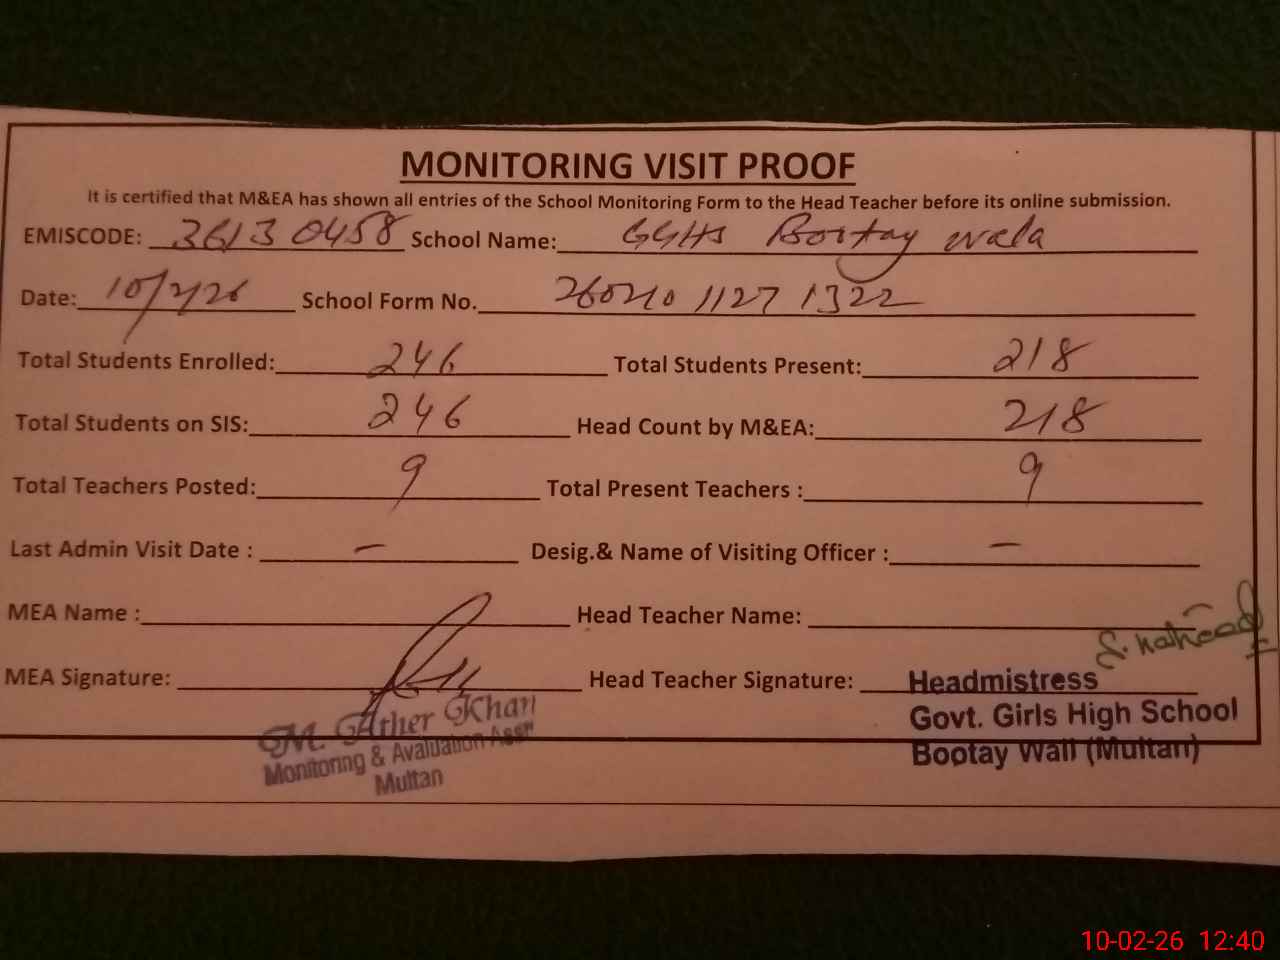 MONITORING VISIT PROOF
It is certified that M&EA has shown all entries of the School Monitoring Form to the Head Teacher before its online submission.
EMISCODE: 36130458 School Name: GGHS Bootay wala
Date: 10/2/26 School Form No. 260210 1127 1322
Total Students Enrolled: 246 Total Students Present: 218
Total Students on SIS: 246 Head Count by M&EA: 218
Total Teachers Posted: 9 Total Present Teachers : 9
Last Admin Visit Date : — Desig.& Name of Visiting Officer : —
MEA Name : Head Teacher Name:
MEA Signature: Head Teacher Signature:
M. Ather Khan
Monitoring & Avaluation Asst
Multan
Headmistress
Govt. Girls High School
Bootay Wali (Multan)
10-02-26 12:40